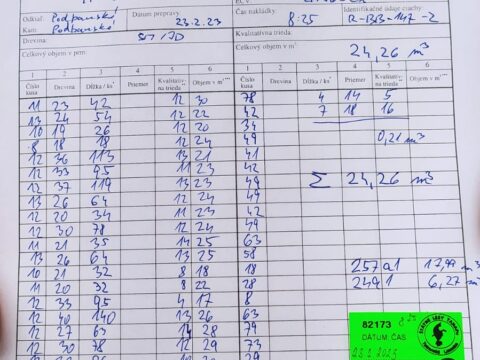 Odkiaľ Podbanské Dátum prepravy: 23.2.23 Čas nakládky: 8:25 Identifikačné údaje ciachy R-BB-147-2
Kam: Podbanské
Drevina: SM/JD Kvalitatívna trieda:
Celkový objem v prm: Celkový objem v m³: 24,26 m³
1 2 3 4 5 6 1 2 3 4 5 6
Číslo kusa Drevina Dĺžka / ks Priemer Kvalitatívna trieda Objem v m Číslo kusa Drevina Dĺžka / ks Priemer Kvalitatívna trieda Objem v m
11 23 42 12 30 78 4 14 5
13 24 54 12 22 42 7 18 16
10 19 26 12 20 34
8 18 18 12 24 49 0,21 m³
12 36 113 13 21 41
12 33 95 11 23 42 Σ 24,26 m³
12 37 119 13 23 49
13 26 64 12 24 49
12 20 34 11 23 42
12 30 78 12 24 49
11 21 35 14 25 63
13 26 64 13 25 58
10 21 32 8 18 18 257a1 17,99 m³
11 20 32 8 22 28 249.1 6,27 m³
12 33 95 4 17 8
12 40 140 13 26 63 82173
12 27 63 14 28 79 DÁTUM, ČAS
12 30 78 12 29 73 23.2.2023